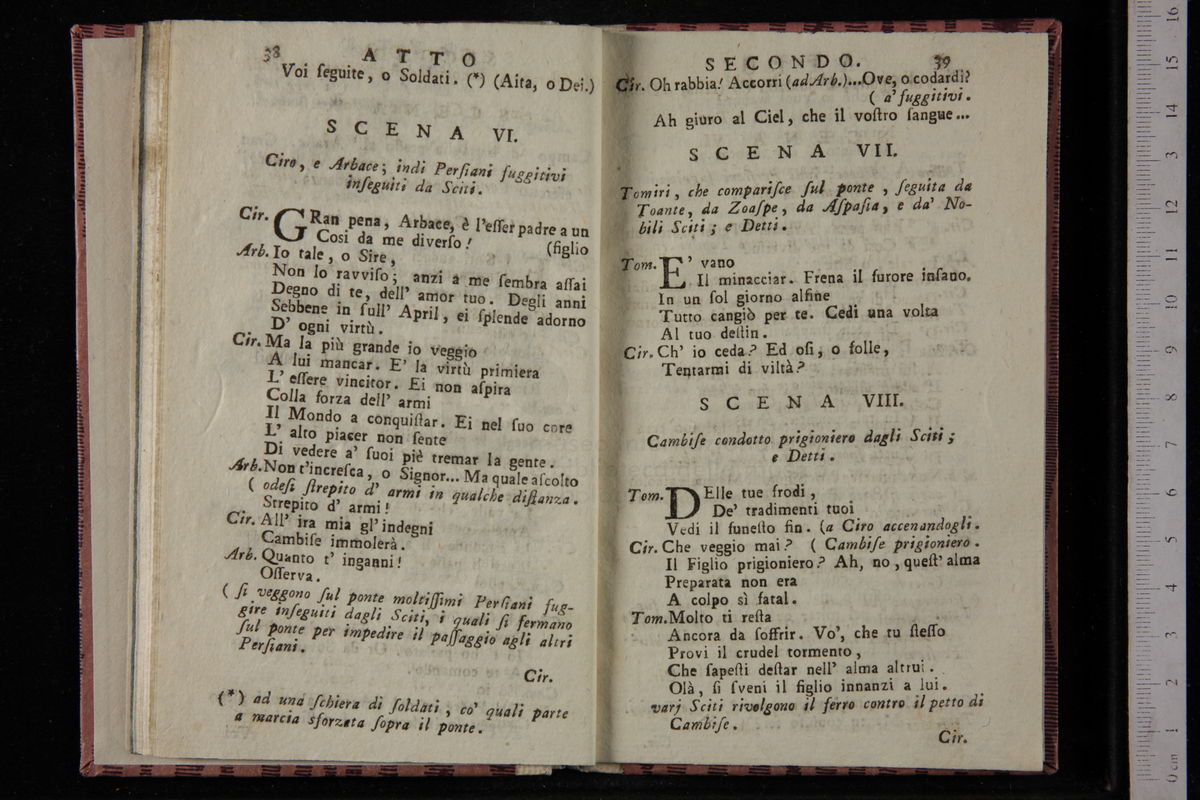 38 ATTO
Voi ſeguite, o Soldati. (*) (Aita, o Dei.)
SCENA VI.
Ciro, e Arbace; indi Perſiani fuggitivi
inſeguiti da Sciti.
Cir. GRan pena, Arbace, è l'eſſer padre a un
Così da me diverſo! (figlio
Arb. Io tale, o Sire,
Non lo ravviſo; anzi a me ſembra aſſai
Degno di te, dell' amor tuo. Degli anni
Sebbene in ſull' April, ei ſplende adorno
D' ogni virtù.
Cir. Ma la più grande io veggio
A lui mancar. E' la virtù primiera
L' eſſere vincitor. Ei non aſpira
Colla forza dell' armi
Il Mondo a conquiſtar. Ei nel ſuo core
L' alto piacer non ſente
Di vedere a' ſuoi piè tremar la gente.
Arb. Non t'increſca, o Signor... Ma quale aſcolto
( odeſi ſtrepito d' armi in qualche diſtanza.
Strepito d' armi!
Cir. All' ira mia gl' indegni
Cambiſe immolerà.
Arb. Quanto t' inganni!
Oſſerva.
( ſi veggono ſul ponte moltiſſimi Perſiani fug-
gire inſeguiti dagli Sciti, i quali ſi fermano
ſul ponte per impedire il paſſaggio agli altri
Perſiani.
Cir.
(*) ad una ſchiera di ſoldati, co' quali parte
a marcia sforzata ſopra il ponte.
SECONDO. 39
Cir. Oh rabbia! Accorri (ad Arb.)...Ove, o codardi?
( a' fuggitivi.
Ah giuro al Ciel, che il voſtro ſangue...
SCENA VII.
Tomiri, che compariſce ſul ponte, ſeguita da
Toante, da Zoaſpe, da Aſpaſia, e da' No-
bili Sciti; e Detti.
Tom. E' vano
Il minacciar. Frena il furore inſano.
In un ſol giorno alfine
Tutto cangiò per te. Cedi una volta
Al tuo deſtin.
Cir. Ch' io ceda? Ed oſi, o folle,
Tentarmi di viltà?
SCENA VIII.
Cambiſe condotto prigioniero dagli Sciti;
e Detti.
Tom. DElle tue frodi,
De' tradimenti tuoi
Vedi il funeſto fin. (a Ciro accenandogli.
Cir. Che veggio mai? ( Cambiſe prigioniero.
Il Figlio prigioniero? Ah, no, queſt' alma
Preparata non era
A colpo sì fatal.
Tom. Molto ti reſta
Ancora da ſoffrir. Vo', che tu ſteſſo
Provi il crudel tormento,
Che ſapeſti deſtar nell' alma altrui.
Olà, ſi ſveni il figlio innanzi a lui.
varj Sciti rivolgono il ferro contro il petto di
Cambiſe.
Cir.
0 cm 1 2 3 4 5 6 7 8 9 10 11 12 13 14 15 16